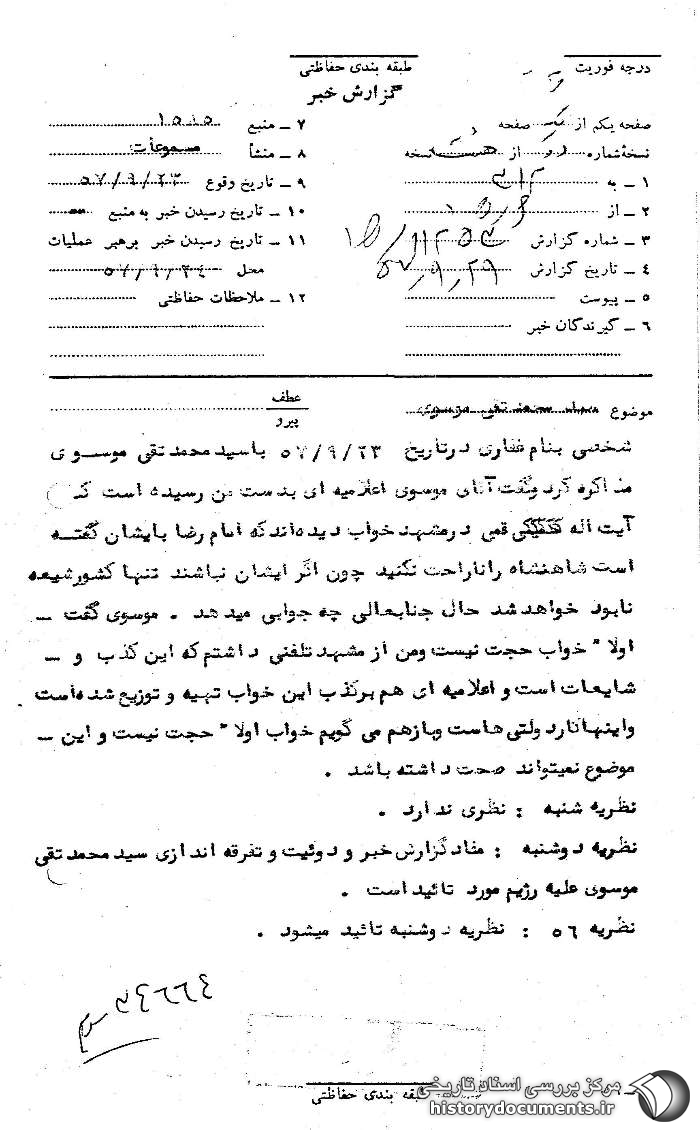 درجه فوریت
طبقه بندی حفاظتی
گزارش خبر
صفحه یکم از یک صفحه
نسخه شماره از هشت نسخه
۱ ـ به ۳۱۲
۲ ـ از
۳ ـ شماره گزارش
۴ ـ تاریخ گزارش ۵۷٫۹٫۲۹
۵ ـ پیوست
۶ ـ گیرندگان خبر
۷ ـ منبع
۸ ـ منشأ مسموعات
۹ ـ تاریخ وقوع ۵۷/۹/۲۳
۱۰ ـ تاریخ رسیدن خبر به منبع
۱۱ ـ تاریخ رسیدن خبر برهبر عملیات
محل ۵۷/۹/۲۴
۱۲ ـ ملاحظات حفاظتی
موضوع سید محمد تقی موسوی
عطف
پیرو
شخصی بنام غفاری در تاریخ ۵۷/۹/۲۳ با سید محمد تقی موسوی
مذاکره کرد وگفت آقای موسوی اعلامیه ای بدست من رسیده است که
آیت اله قمی در مشهد خواب دیده اند که امام رضا بایشان گفته
است شاهنشاه را ناراحت نکنید چون اگر ایشان نباشند تنها کشور شیعه
نابود خواهد شد حال جنابعالی چه جوابی میدهد . موسوی گفت ـ
اولا" خواب حجت نیست ومن از مشهد تلفنی داشتم که این کذب و ـ
شایعات است و اعلامیه ای هم برکذب این خواب تهیه و توزیع شده است
واینها کار دولتی هاست وبازهم می گویم خواب اولا" حجت نیست و این ـ
موضوع نمیتواند صحت داشته باشد .
نظریه شنبه : نظری ندارد .
نظریه دوشنبه : مفاد گزارش خبر و دوئیت و تفرقه اندازی سید محمد تقی
موسوی علیه رژیم مورد تائید است .
نظریه ۵۶ : نظریه دوشنبه تائید میشود .
طبقه بندی حفاظتی
مرکز بررسی اسناد تاریخی
historydocuments.ir